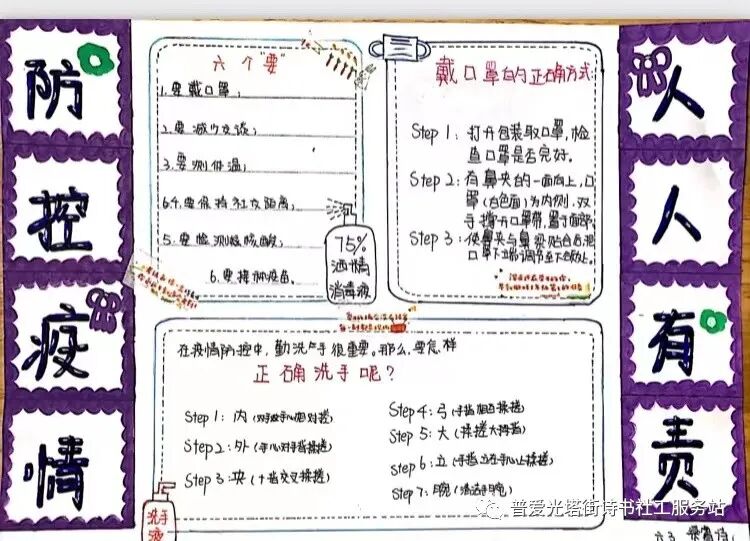 防
控
疫
情
六个"要"
1.要戴口罩;
2.要减少交谈;
3.要测体温;
6.4.要保持社交距离;
5.要检测核酸;
6.要接种疫苗。
75%
酒精
消毒液
戴口罩的正确方式:
Step 1: 打开包装取口罩,检
查口罩是否完好。
Step 2: 有鼻夹的一面向上,口
罩(白色面)为内侧,双
手撑开口罩带,置于面部
Step 3: 使鼻夹与鼻梁贴合
口罩下端调节至下颌处。
在疫情防控中,勤洗手很重要。那么,要怎样
正确洗手呢?
Step 1: 内(对搓)
Step 2: 外(手心对手背揉搓)
Step 3: 夹(十指交叉揉搓)
Step 4: 弓(手指相互揉搓)
Step 5: 大(揉搓大拇指)
Step 6: 立(手指立在手心上揉搓)
Step 7: 腕(清洁手腕)
洗手
液
人
人
有
责
普爱光塔街诗书社工服务站